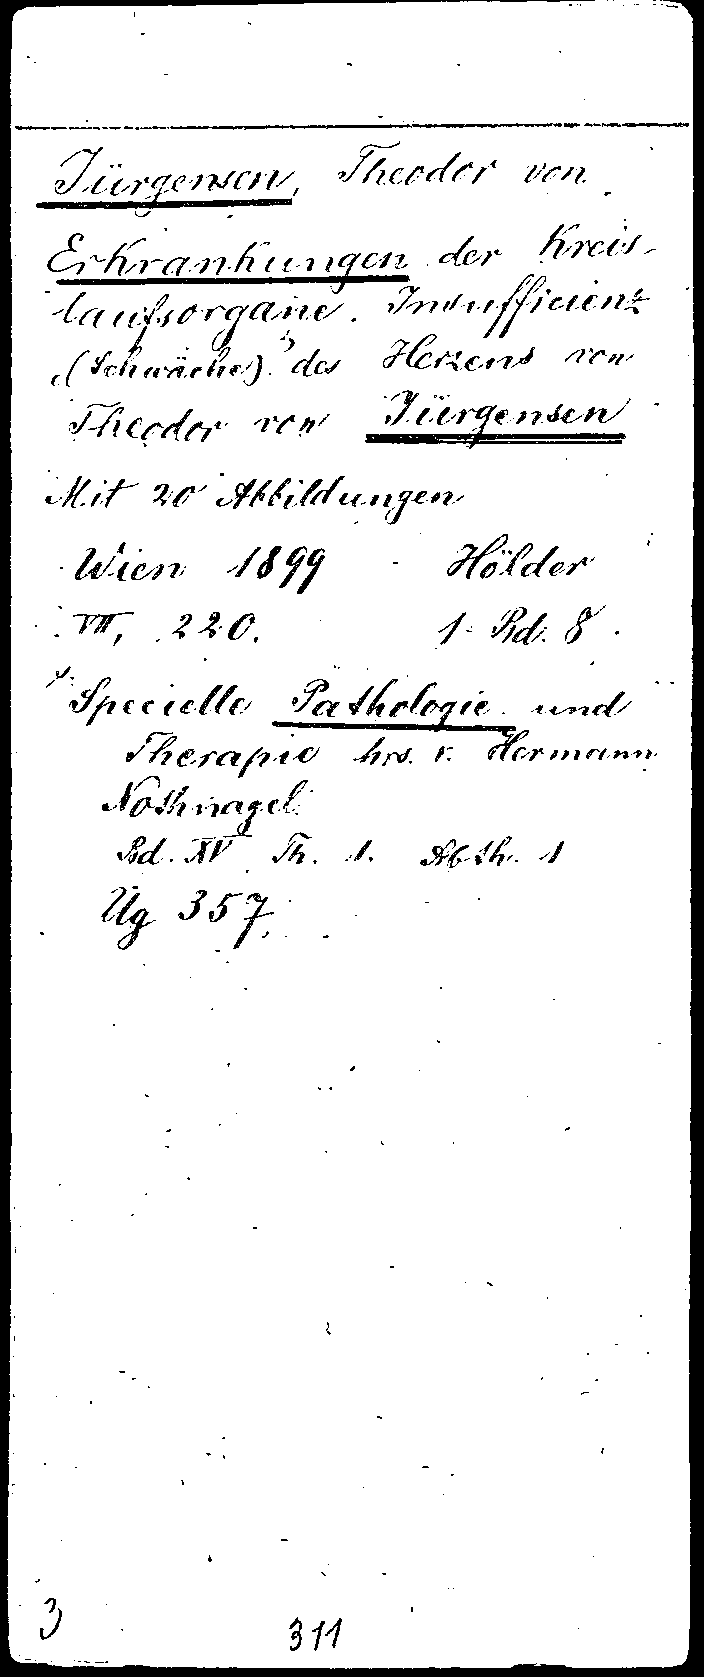 Jürgensen, Theodor von
Erkrankungen der Kreis-
laufsorgane. Insufficienz
(Schwäche) des Herzens von
Theodor von Jürgensen
Mit 20 Abbildungen
Wien 1899 Hölder
VII, 220. 1 Bd. 8
Specielle Pathologie und
Therapie hrs. v. Hermann
Nothnagel
Bd. XV Th. 1. Abth. 1
Ug 357
3 311